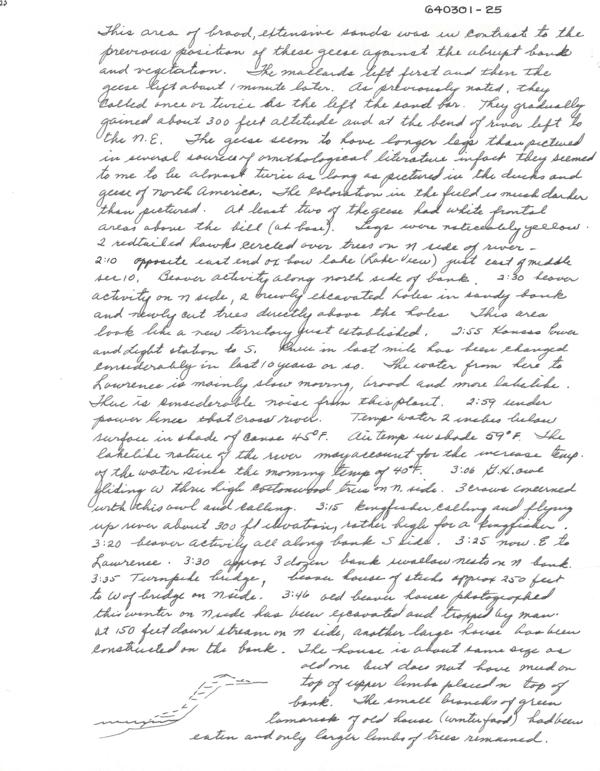 640301-25
This area of broad, extensive sands was in contrast to the
previous position of these geese against the abrupt bank
and vegetation. The mallards left first and then the
geese left about 1 minute later. As previously noted, they
called once or twice as the left the sand bar. They gradually
gained about 300 feet altitude and at the bend of river left to
the N.E. The geese seem to have longer legs than pictured
in several sources of ornithological literature infact they seemed
to me to be almost twice as long as pictured in the ducks and
geese of North America. The coloration in the field is much darker
than pictured. At least two of the geese had white frontal
areas above the bill (at base). Legs were noticeably yellow.
2 redtailed hawks circled over trees on N side of river -
2:10 opposite east end ox bow lake (Lake View) just east of middle
sec 10. Beaver activity along north side of bank. 2:30 beaver
activity on N side, 2 newly excavated holes in sandy bank
and newly cut trees directly above the holes This area
look like a new territory just established. 2:55 Kansas Power
and Light station to S. River in last mile has been changed
considerably in last 10 years or so. The water from here to
Lawrence is mainly slow moving, broad and more lakelike.
There is considerable noise from this plant. 2:59 under
power lines that cross river. Temp water 2 inches below
surface in shade of canoe 45°F. Air temp in shade 59°F. The
lakelike nature of the river may account for the increase temp.
of the water since the morning temp of 40°F. 3:06 G.H. owl
gliding W three high cottonwood trees on N. side. 3 crows concerned
with this owl and calling. 3:15 kingfisher calling and flying
up river about 300 ft elevation, rather high for a kingfisher.
3:20 beaver activity all along bank S side. 3:25 now E to
Lawrence. 3:30 approx 3 dozen bank swallow nests on N bank.
3:35 Turnpike bridge, beaver house of sticks approx 250 feet
to W of bridge on N side. 3:46 old beaver house photographed
this winter on N side has been excavated and trapped by man.
At 150 feet down stream on N side, another large house has been
constructed on the bank. The house is about same size as
old one but does not have mud on
top of upper limbs placed n top of
bank. The small branches of green
tamarisk of old house (winter food) had been
eaten and only larger limbs of trees remained.